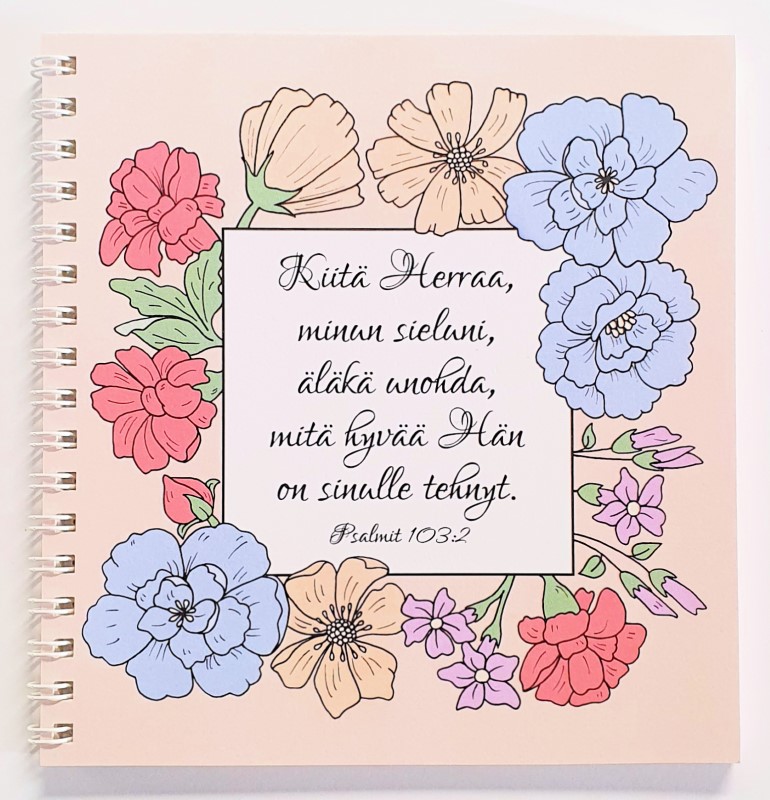 Kiitä Herraa,
minun sieluni,
äläkä unohda,
mitä hyvää Hän
on sinulle tehnyt.
Psalmit 103:2